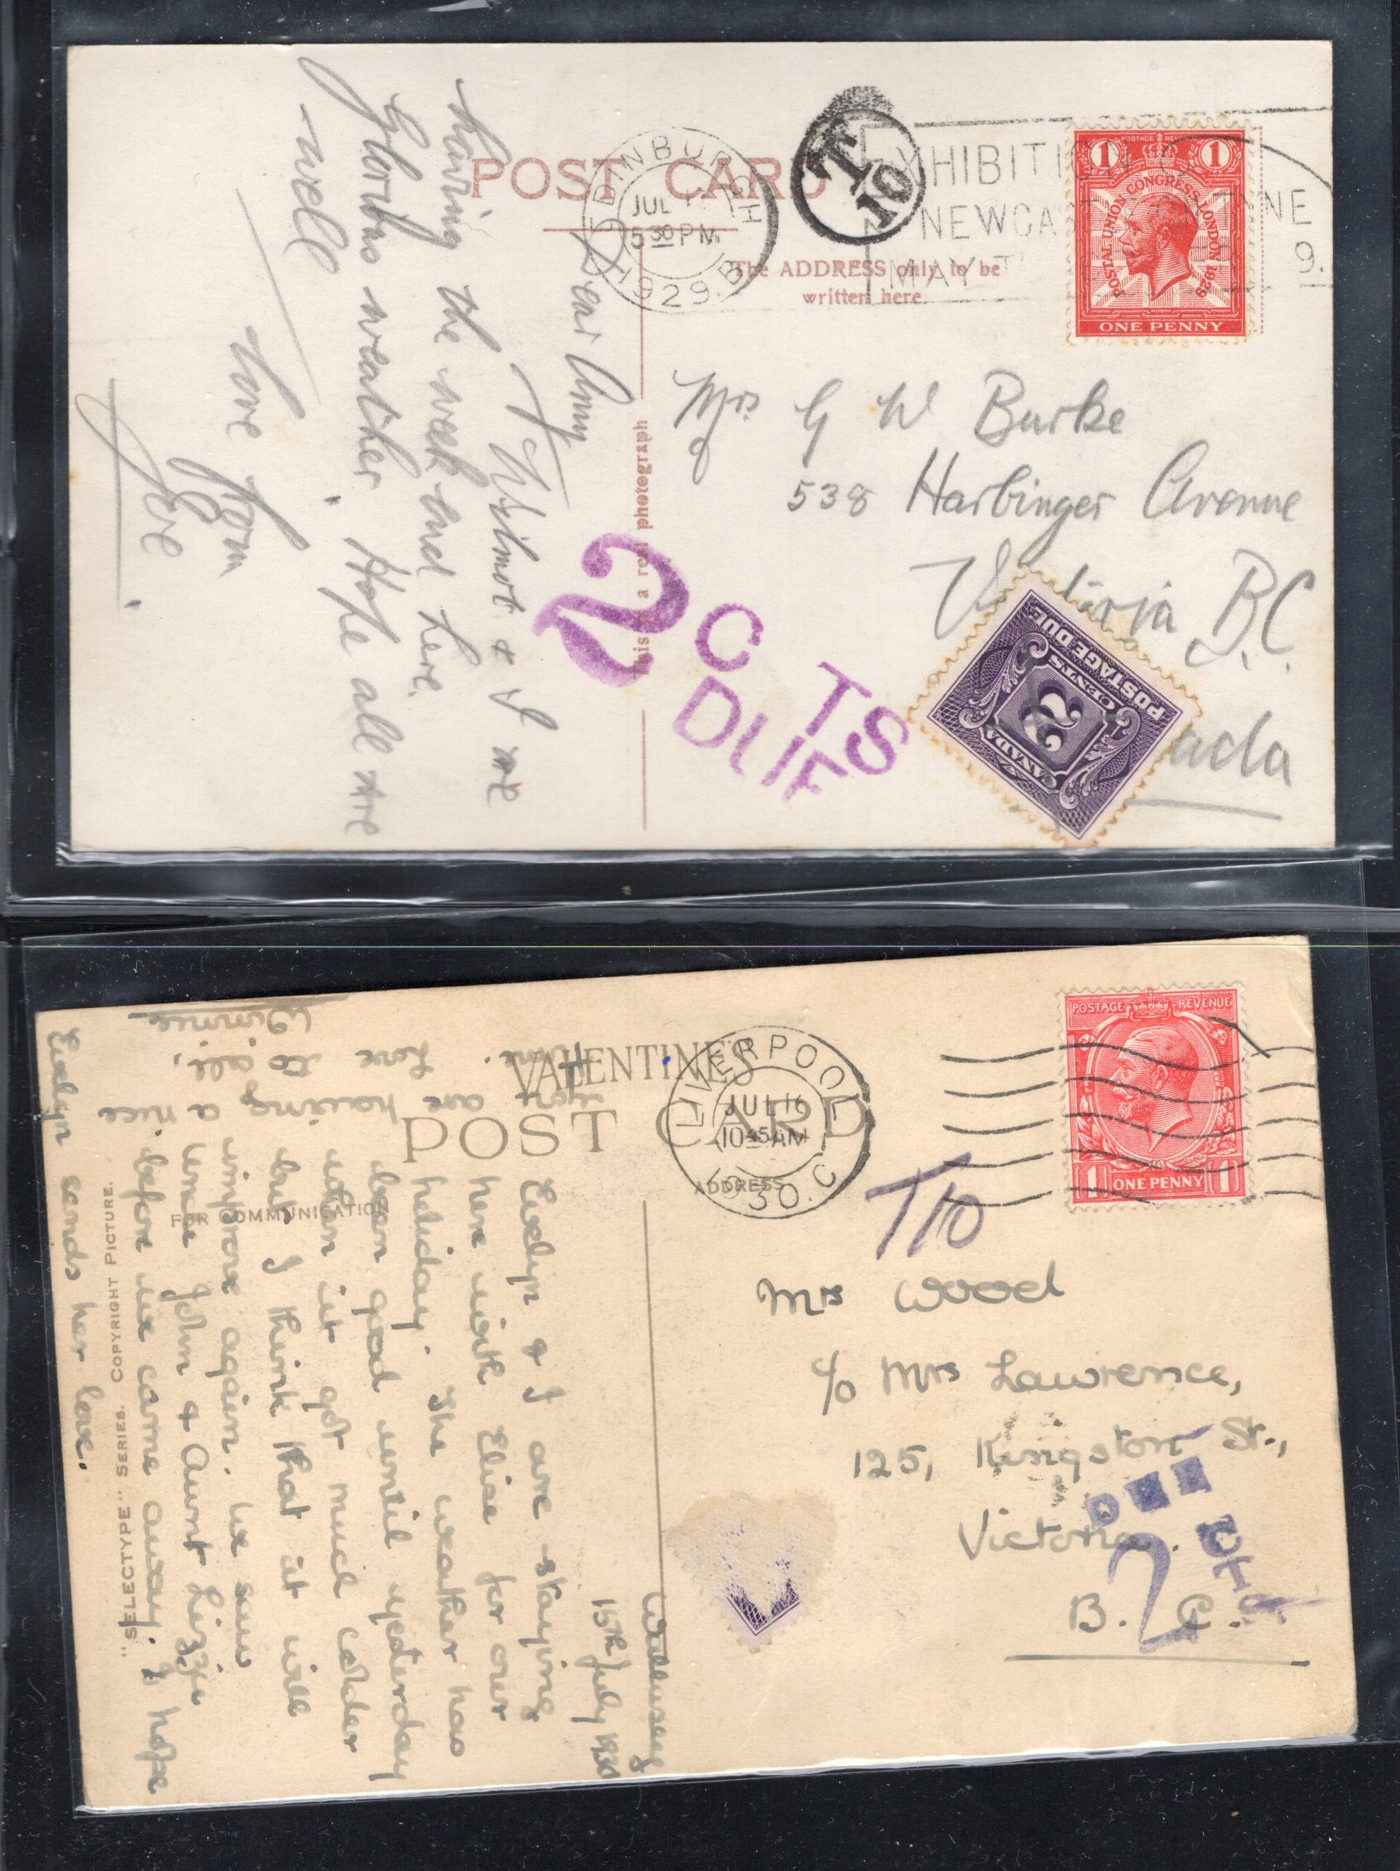 POST CARD
The ADDRESS only to be
written here.
EDINBURGH
JUL 1
5 30 PM
1929 B
T
10
EXHIBITION
NEWCASTLE TYNE
MAY
9.
POSTAGE REVENUE
1 1
POSTAL UNION CONGRESS LONDON 1929
ONE PENNY
Mrs G W Burke
538 Harbinger Avenue
Victoria B.C.
Canada
2 CTS
DUE
CANADA
2
CENTS
POSTAGE DUE
This is a real photograph
Dear Amy
T. Wilmot & I are
having the week end here.
Glorious weather. Hope all are
well
Love from
Joe.
VALENTINE'S
POST CARD
FOR COMMUNICATION
ADDRESS
LIVERPOOL
JUL 16
10 45 AM
1930. C
POSTAGE REVENUE
1 ONE PENNY 1
T 10
Mrs Wood
c/o Mrs Lawrence,
125, Kingston St.,
Victoria.
B. C.
DUE
2
"SELECTYPE" SERIES. COPYRIGHT PICTURE.
Wallasey
15th July 1930
Evelyn & I are staying
here with Elsie for our
holiday. The weather has
been good until yesterday
when it got much colder
but I think that it will
improve again. We saw
Uncle John & Aunt Lizzie
before we came away. I hope
you are having a nice
Love to all,
Winnie
Evelyn sends her love.